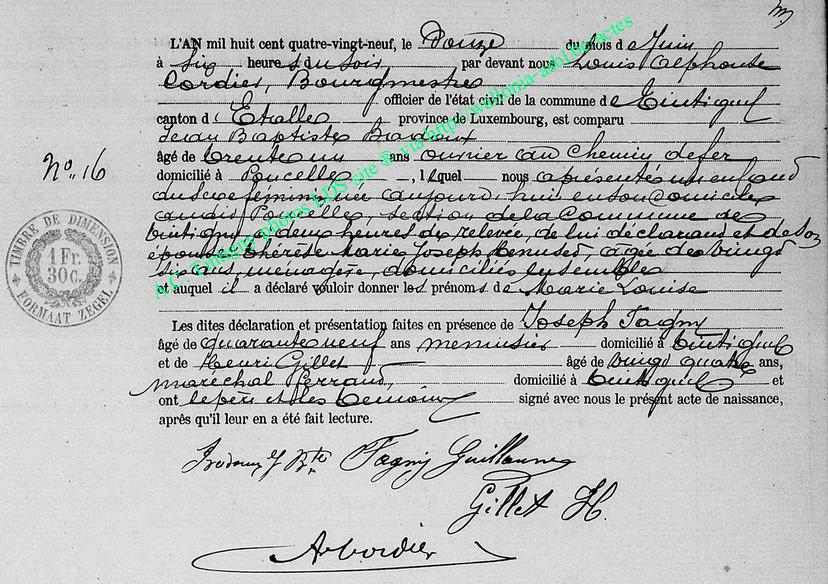 L'AN mil huit cent quatre-vingt-neuf, le Douze du mois de Juin
à Six heures du soir, par devant nous Louis Alphonse
Cordier, Bourgmestre
officier de l'état civil de la commune de Tintigny
canton d'Etalle province de Luxembourg, est comparu
Jean Baptiste
âgé de trente un ans ouvrier au chemin de fer
domicilié à Poncelle, lequel nous a présenté un enfant
du sexe féminin né aujourd'hui en son domicile
audit Poncelle, section de la Commune de
Tintigny à deux heures de relevée, de lui déclarant et de son
épouse Thérèse Marie Joseph âgée de vingt
six ans, ménagère, domiciliés ensemble
et auquel il a déclaré vouloir donner les prénoms de Marie Louise
Les dites déclaration et présentation faites en présence de Joseph Fagny
âgé de quarante neuf ans menuisier domicilié à Tintigny
et de Henri Gillet âgé de vingt quatre ans,
maréchal ferrant, domicilié à Tintigny et
ont le père et les témoins signé avec nous le présent acte de naissance,
après qu'il leur en a été fait lecture.
No. 16
TIMBRE DE DIMENSION
1 Fr.
30 c.
FORMAAT ZEGEL
Bte Fagny Guillaume
Gillet H.
A Cordier
A.C. Tintigny photos LDS site via http://wallonia-asbl.be/actes